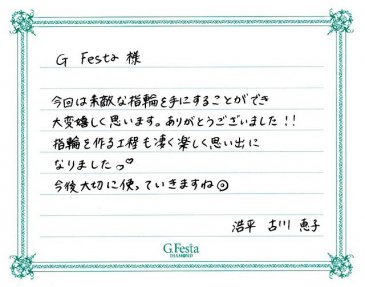 G Festa 様
今回は素敵な指輪を手にすることができ
大変嬉しく思います。ありがとうございました!!
指輪を作る工程も凄く楽しく思い出に
なりました♡
今後大切に使っていきますね☺
浩平 古川 恵子
G.Festa
DIAMOND